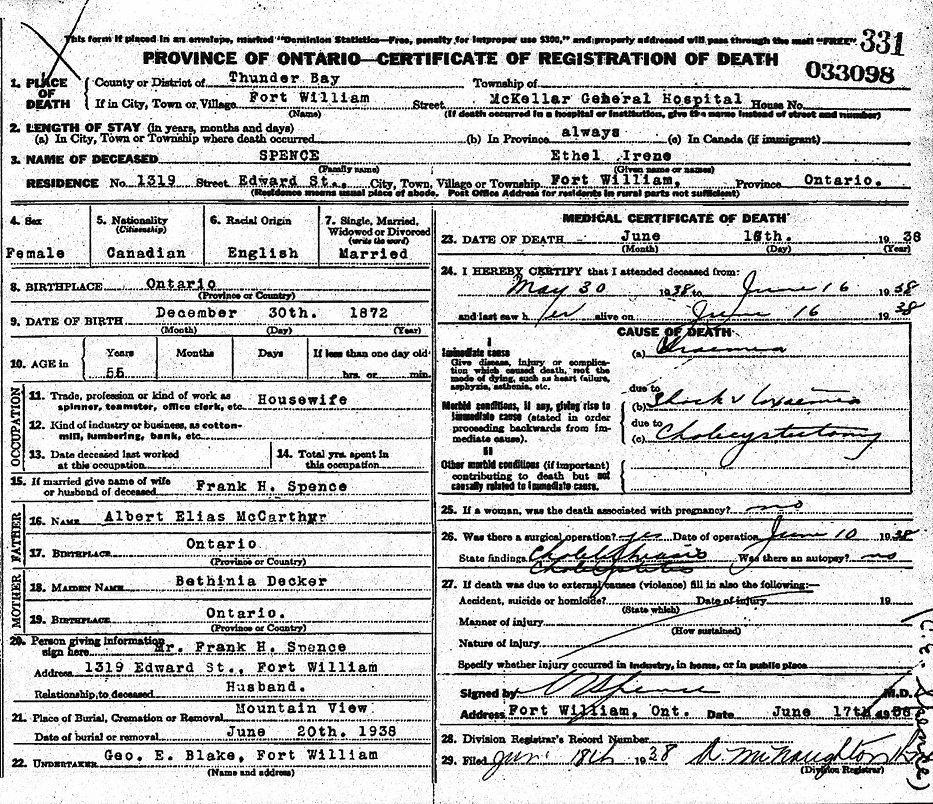 This form if placed in an envelope, marked "Dominion Statistics—Free, penalty for improper use $300," and properly addressed will pass through the mail "FREE" 331
PROVINCE OF ONTARIO—CERTIFICATE OF REGISTRATION OF DEATH 033098
1. PLACE OF DEATH County or District of Thunder Bay Township of
If in City, Town or Village Fort William Street McKellar General Hospital House No.
(Name) (If death occurred in a hospital or institution, give the name instead of street and number)
2. LENGTH OF STAY (in years, months and days)
(a) In City, Town or Township where death occurred (b) In Province always (c) In Canada (if immigrant)
3. NAME OF DECEASED SPENCE Ethel Irene
(Family name) (Given name or names)
RESIDENCE No. 1319 Street Edward St., City, Town, Village or Township Fort William, Province Ontario.
(Residence means usual place of abode. Post Office Address for residents in rural parts not sufficient)
4. Sex 5. Nationality (Citizenship) 6. Racial Origin 7. Single, Married, Widowed or Divorced (write the word)
Female Canadian English Married
8. BIRTHPLACE Ontario
(Province or Country)
9. DATE OF BIRTH December 30th. 1872
(Month) (Day) (Year)
10. AGE in Years Months Days If less than one day old
hrs. or min.
OCCUPATION
11. Trade, profession or kind of work as spinner, teamster, office clerk, etc. Housewife
12. Kind of industry or business, as cotton-mill, lumbering, bank, etc.
13. Date deceased last worked at this occupation 14. Total yrs. spent in this occupation
15. If married give name of wife or husband of deceased Frank H. Spence
FATHER
16. NAME Albert Elias McCarthyr
17. BIRTHPLACE Ontario
(Province or Country)
MOTHER
18. MAIDEN NAME Bethinia Decker
19. BIRTHPLACE Ontario.
(Province or Country)
20. Person giving information sign here Mr. Frank H. Spence
Address 1319 Edward St., Fort William
Relationship to deceased Husband.
21. Place of Burial, Cremation or Removal Mountain View
Date of burial or removal June 20th. 1938
22. UNDERTAKER Geo. E. Blake, Fort William
(Name and address)
MEDICAL CERTIFICATE OF DEATH
23. DATE OF DEATH June 16th. 1938
(Month) (Day) (Year)
24. I HEREBY CERTIFY that I attended deceased from:
May 30 1938 to June 16 1938
and last saw her alive on June 16 38
CAUSE OF DEATH
I
Immediate cause (a) Uraemia
Give disease, injury or complication which caused death, not the mode of dying, such as heart failure, asphyxia, asthenia, etc.
due to
Morbid conditions, if any, giving rise to immediate cause (stated in order proceeding backwards from immediate cause). (b) Shock & toxaemia
due to
(c) Cholecystectomy
II
Other morbid conditions (if important) contributing to death but not causally related to immediate cause.
25. If a woman, was the death associated with pregnancy? no
26. Was there a surgical operation? yes Date of operation June 10 1938
State findings Cholelithiasis Cholecystitis Was there an autopsy? no
27. If death was due to external causes (violence) fill in also the following:—
Accident, suicide or homicide? Date of injury 19
(State which)
Manner of injury
(How sustained)
Nature of injury
Specify whether injury occurred in industry, in home, or in public place
Signed by Spence M.D.
Address Fort William, Ont. Date June 17th 1938
28. Division Registrar's Record Number
29. Filed Jun 18th 1938 McNaughton
(Division Registrar)